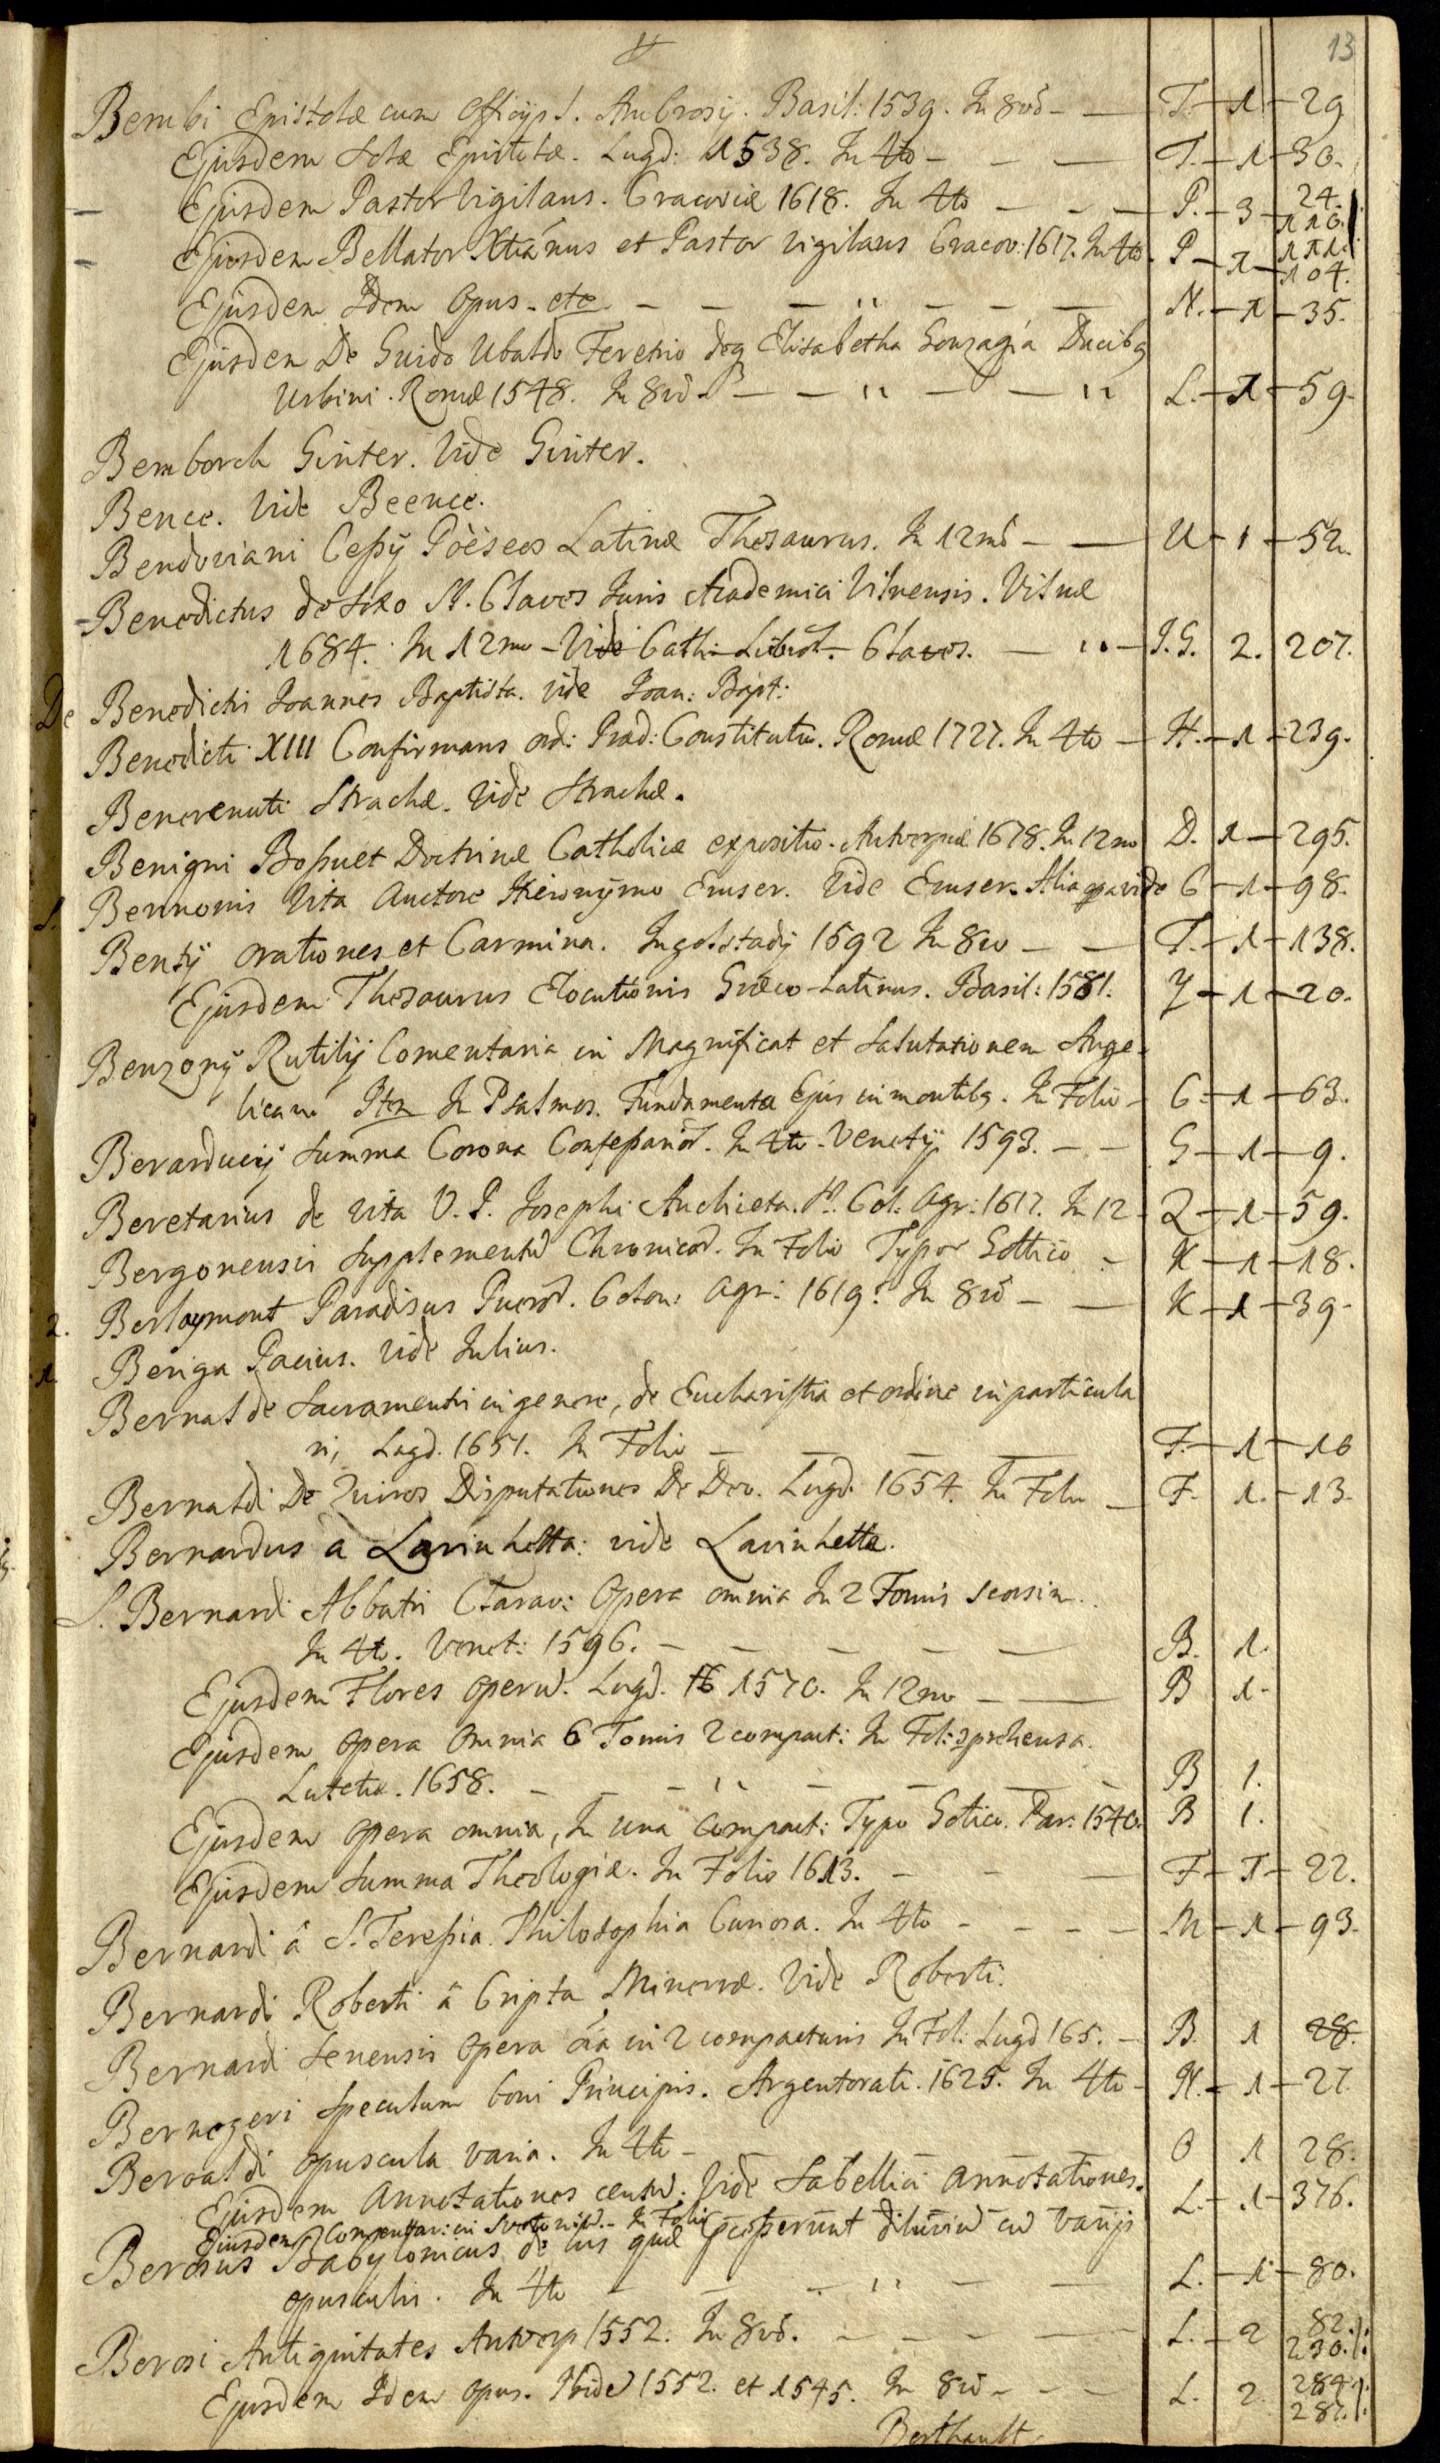 13
Bembi Epistolæ cum Officijs S. Ambrosij. Basil: 1539. In 8vo — T. — 1 — 29
Ejusdem Solæ Epistolæ. Lugd: 1538. In 4to — T. — 1 — 30.
Ejusdem Pastor Vigilans. Cracoviæ 1618. In 4to — P. — 3 — 24. 110.
Ejusdem Bellator Xtianus et Pastor vigilans Cracov: 1617. In 4to. P — 1 — 111. 104.
Ejusdem Idem Opus. etc — N. — 1 — 35.
Ejusdem De Guido Ubaldo Feretrio deq Elisabetha Gonzagia Ducibq
Urbini. Romæ 1548. In 8vo — L. — 1 — 59.
Bemborch Ginter. Vide Ginter.
Bence. Vide Beence.
Bendoviani Cessij Poëseos Latinæ Thesaurus. In 12mo — U — 1 — 52.
Benedictus de Soxo St. Claves Juris Academici Vilnensis. Vilnæ
1684. In 12mo — Vide Cath: Libror. Claves. — J.G. 2. 207.
De Benedictis Joannes Baptista. Vide Joan: Bapt:
Benedicti XIII Confirmans ord: Præd: Constitutio. Romæ 1727. In 4to — H. — 1 — 239.
Benevenuti Strachæ. Vide Strachæ.
Benigni Bossuet Doctrinæ Catholicæ expositio. Antverpiæ 1678. In 12mo D. 1 — 295.
S. Bennonis Vita Auctore Hieronymo Emser. Vide Emser. Alia vide C — 1 — 98.
Bensij orationes et Carmina. Ingolstadij 1592 In 8vo — T. — 1 — 138.
Ejusdem Thesaurus Elocutionis Græco-Latinus. Basil: 1581. Y — 1 — 20.
Benzonij Rutilij Comentaria in Magnificat et Salutationem Ange-
licam Item In Psalmos. Fundamenta Ejus in montibq. In Folio — C — 1 — 63.
Berarducij Summa Corona Confessarior. In 4to. Venetijs 1593. — G — 1 — 9.
Beretarius de vita V. P. Josephi Anchieta. S. Col. Agr: 1617. In 12 — Z — 1 — 59.
Bergonensis Supplementu Chronicor. In Folio Typor Gottico — K — 1 — 18.
2. Berlaymont Paradisus Pueror. Colon: Agr: 1619. In 8vo — K — 1 — 39.
1. Beriga Pacius. Vide Julius.
Bernal de Sacramentis in genere, de Eucharistia et ordine in particula
ri, Lugd. 1651. In Folio — F. — 1 — 16
Bernaldi De Quiros Disputationes De Deo. Lugd: 1654. In Folio — F. 1. — 13.
Bernardus a Lavinhetta: vide Lavinhetta.
S. Bernardi Abbatis Clarav: Opera omnia In 2 Tomis seorsim.
In 4to. Venet: 1596. — B. 1.
Ejusdem Flores operu. Lugd. 16 1570. In 12mo — B 1.
Ejusdem opera omnia 6 Tomis 2 compact: In Fol: 3prehensa.
Lutetiæ. 1658. — B 1.
Ejusdem opera omnia, In una Compact: Typo Gotico. Par: 1540. B 1.
Ejusdem Summa Theologiæ. In Folio 1613. — F — 1 — 22.
Bernardi â S. Teressia Philosophia Curiosa. In 4to — M — 1 — 93.
Bernardi Roberti â Cripta Minervæ. Vide Roberti.
Bernardi Senensis opera oia in 2 compacturis In Fol: Lugd 165. — B. 1 28.
Bernegeri Speculum boni Principis. Argentorati. 1625. In 4to — N. — 1 — 27.
Beroaldi Opuscula varia. In 4to — O 1 28.
Ejusdem Annotationes centu. Vide Sabellici Annotationes. L. — 1 — 376.
Ejusdem Commentar: in Svetoniu. In Folio
Berosus Babylonicus de iis quæ præcesserunt diluviu cu varijs
opusculis. In 4to — L. — 1 — 80.
Berosi Antiquitates Antverp 1552. In 8vo. — L. — 2 82. 230.
Ejusdem Idem opus. Ibide 1552. et 1545. In 8vo — L. 2. 284. 287.
Berthault.